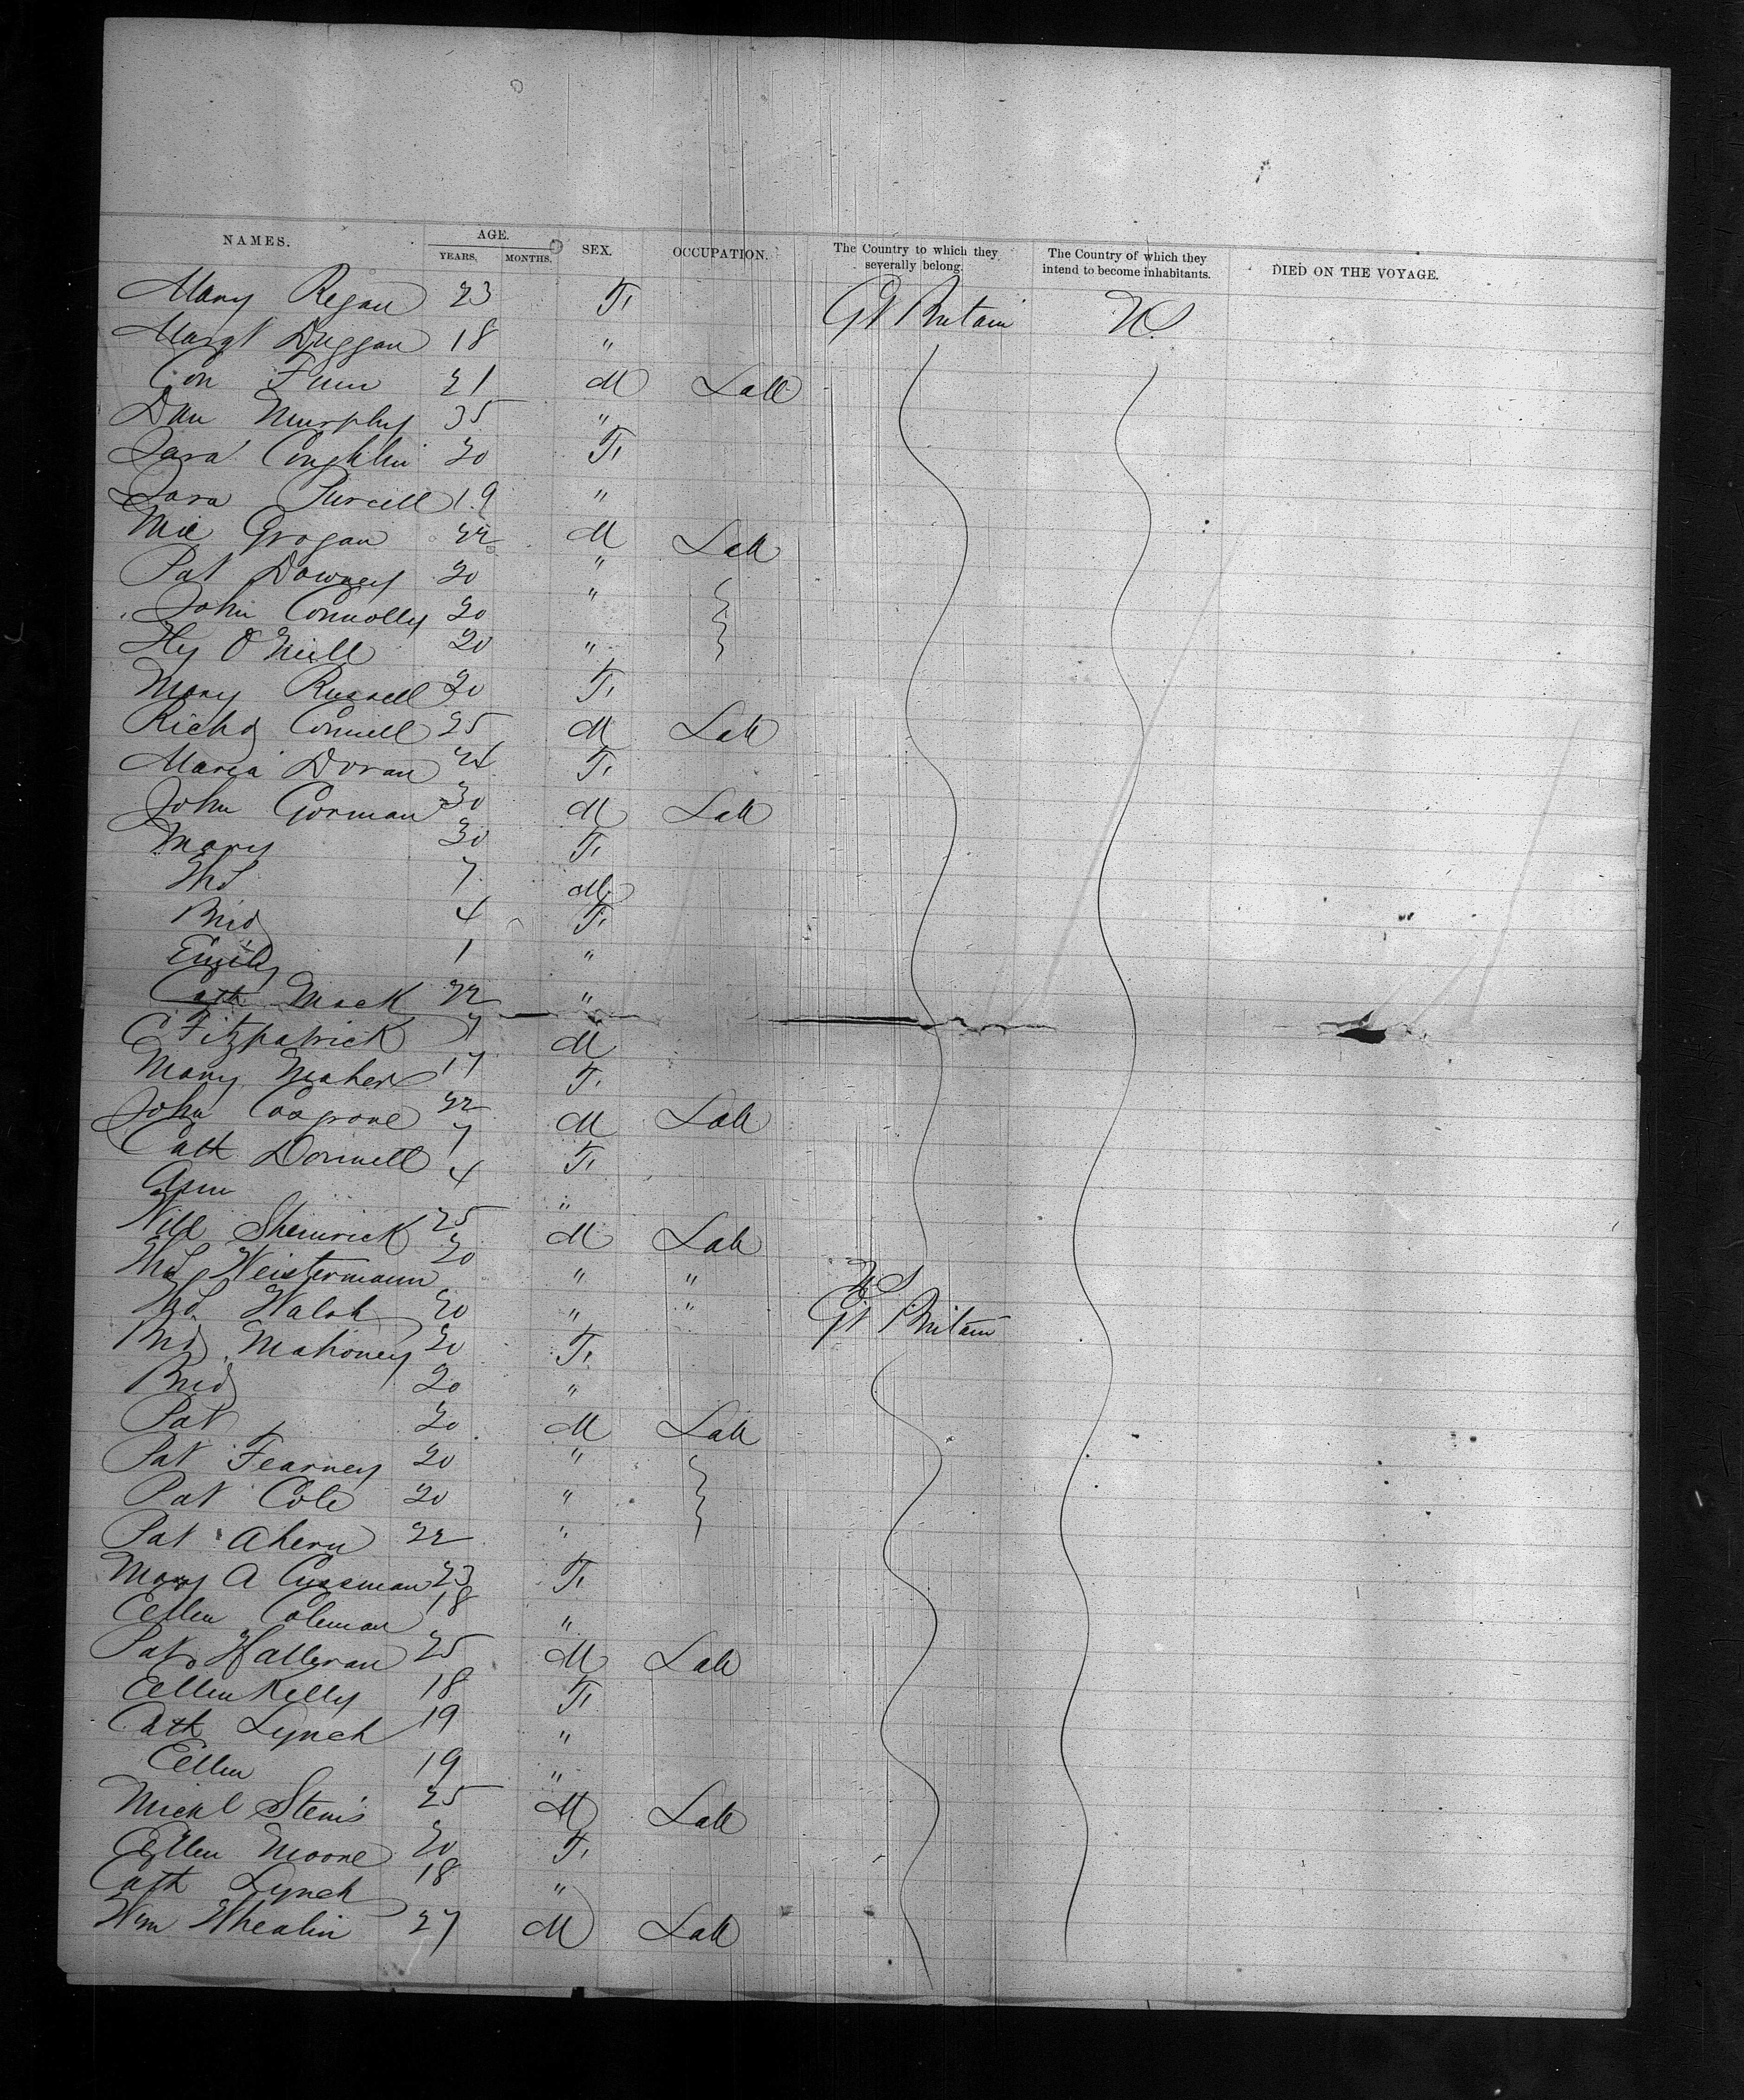 NAMES. AGE. YEARS. MONTHS. SEX. OCCUPATION. The Country to which they severally belong. The Country of which they intend to become inhabitants. DIED ON THE VOYAGE.
Mary Regan 23 F. Gt Britain US
Margt Duggan 18 "
Con Finn 21 M Lab
Dan Murphy 35 "
Sara Coughlin 20 F.
Sara Purcell 19 "
Mic Grogan 22 M Lab
Pat Downey 20 "
John Connolly 20 "
Hy O'Neill 20 "
Mary Russell 20 F.
Richd Connell 25 M Lab
Maria Doran 24 F.
John Gorman 30 M Lab
Mary 30 F.
Ths 7 M
Brid 4 F.
Emily 1 "
Cath Mack 22 "
C Fitzpatrick 7 M
Mary Maher 17 F.
John Cosgrove 22 M Lab
Cath Donnell 7 F.
Ann 4 "
Will 25 M Lab
Weistermann 20 " " US
Walsh 20 " " Gt Britain
Brid Mahoney 20 F.
Brid 20 "
Pat 20 M Lab
Pat Fearney 20 "
Pat Cole 20 "
Pat Ahern 22 "
Mary A Cussman 23 F.
Ellen Coleman 18 "
Pat Halleran 25 M Lab
Ellen Kelly 18 F.
Cath Lynch 19 "
Ellen 19 "
Michl 25 M Lab
Ellen Moore 20 F.
Cath Lynch 18 "
Wm Whealin 27 M Lab